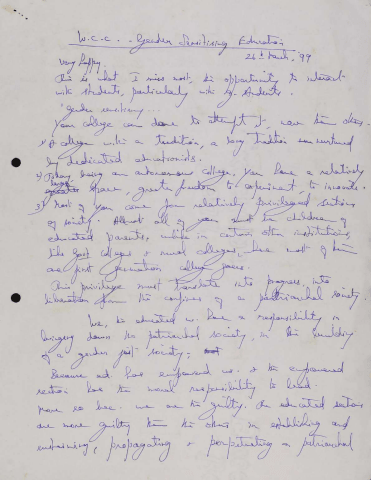 W.C.C. .. Gender Sensitising Education
26th March, '99
Very happy.
This is what I miss most, the opportunity to interact
with students, particularly with students.
'Gender
Your college can dare to attempt it, more than others.
1) A college with a tradition, a very tradition nurtured
by dedicated educationists.
2) Today, being an autonomous college, you have a relatively
larger space, greater freedom to experiment, to innovate.
3) Most of you come from relatively privileged sections
of society. Almost all of you must be children of
educated parents, while in certain other institutions,
like Govt colleges & rural colleges, most of them
are first generation college goers.
This privilege must translate into progress, into
liberation from the confines of a patriarchal society.
We, the educated we have a responsibility, in
bringing down the patriarchal society, in the building
of a gender just society.
Because edn has empowered us. & the empowered
section has the moral responsibility to lead.
More so here. we are the guilty. The educated sections
are more guilty than the others in establishing and
sustaining, propagating & perpetuating a patriarchal